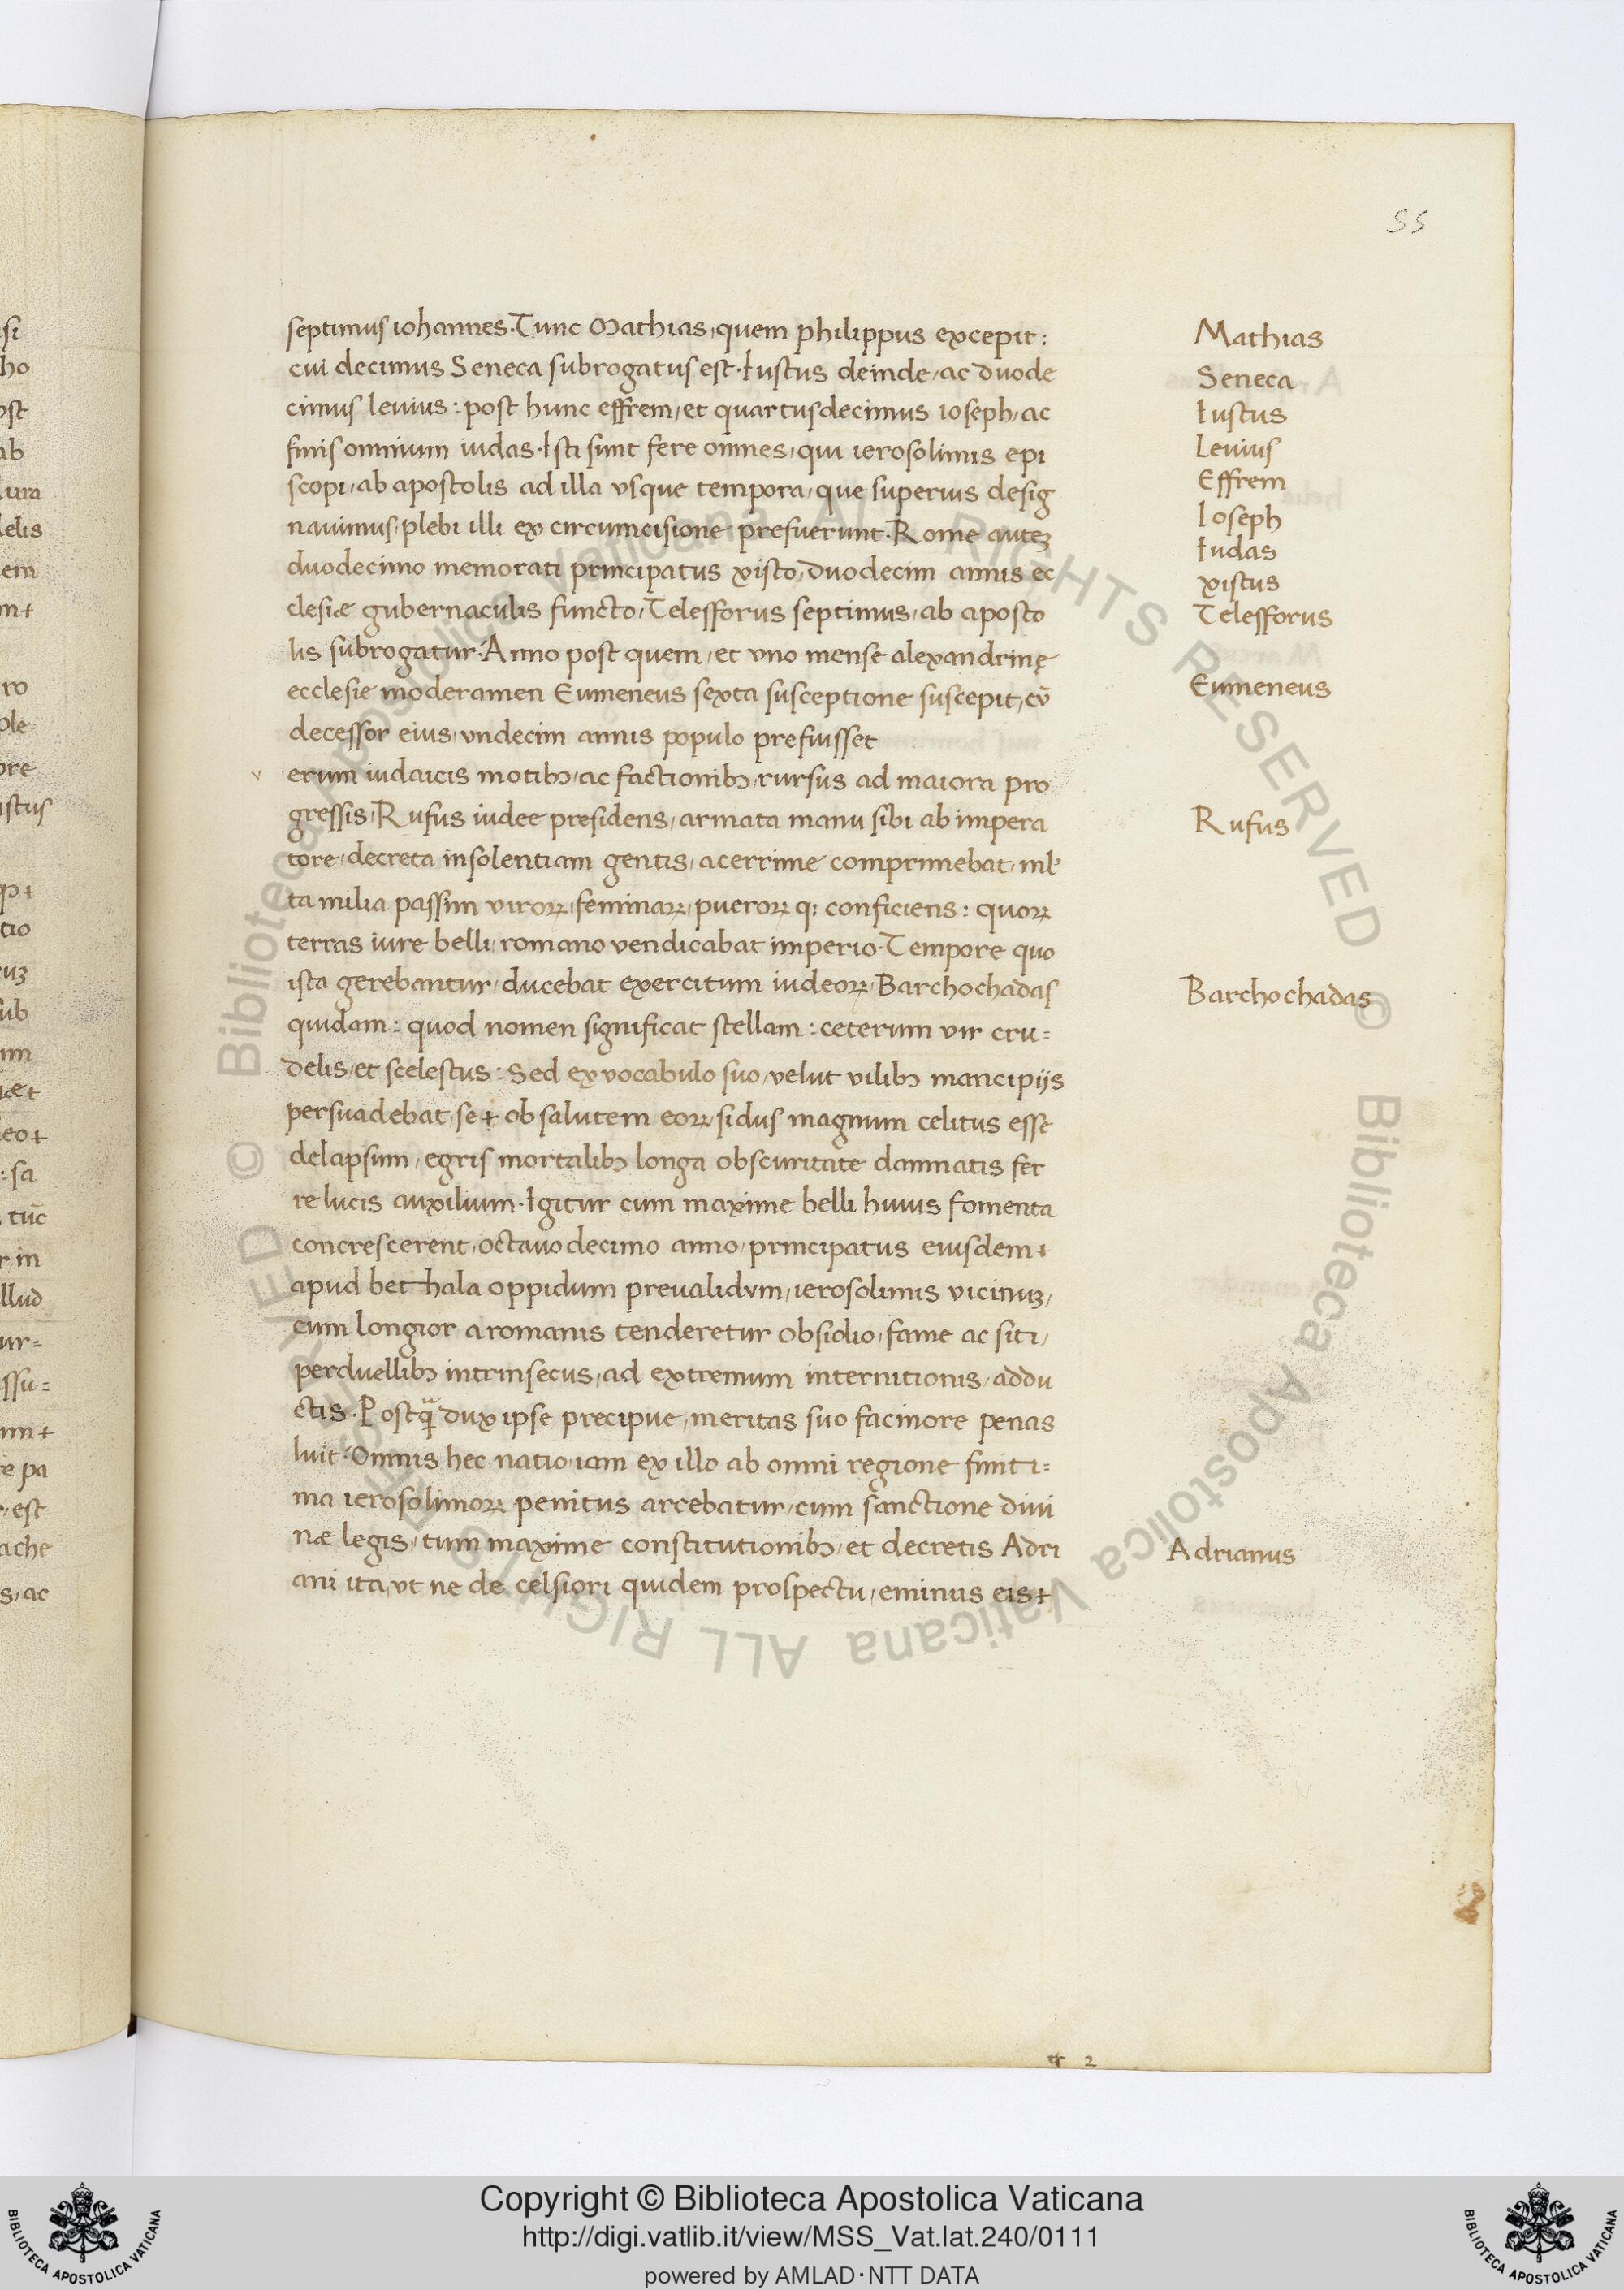 55
septimus iohannes. Tunc Mathias, quem philippus excepit:
cui decimus Seneca subrogatus est. Iustus deinde, ac duode
cimus leuius: post hunc effrem, et quartusdecimus ioseph, ac
finis omnium iudas. Isti sunt fere omnes, qui ierosolimis epi
scopi, ab apostolis ad illa vsque tempora, que superius desig
nauimus, plebi illi ex circumcisione prefuerunt. Rome auteꝫ
duodecimo memorati principatus xisto, duodecim annis ec
clesiæ gubernaculis functo, Telesforus septimus, ab aposto
lis subrogatur. Anno post quem, et vno mense alexandrinę
ecclesie moderamen Eumeneus sexta susceptione suscepit, cū
decessor eius, vndecim annis populo prefuisset
v erum iudaicis motibꝰ, ac factionibꝰ, rursus ad maiora pro
gressis, Rufus iudee presidens, armata manu sibi ab impera
tore, decreta insolentiam gentis, acerrime comprimebat, ml'
ta milia passim viroꝝ, feminaꝝ, pueroꝝ q: conficiens: quoꝝ
terras iure belli, romano vendicabat imperio. Tempore quo
ista gerebantur, ducebat exercitum iudeoꝝ, Barchochadas
quidam: quod nomen significat stellam: ceterum vir cru=
delis, et scelestus: Sed ex vocabulo suo, velut vilibꝰ mancipijs
persuadebat, se ob salutem eoꝝ, sidus magnum celitus esse
delapsum, egris mortalibꝰ longa obscuritate damnatis fer
re lucis auxilium. Igitur cum maxime belli huius fomenta
concrescerent, octauo decimo anno, principatus eiusdem
apud bethhala oppidum preualidvm, ierosolimis vicinuꝫ,
cum longior a romanis tenderetur obsidio, fame ac siti,
perduellibꝰ intrinsecus, ad extremum internitionis, addu
ctis. Postꝙ̃ dux ipse precipue, meritas suo facinore penas
luit. Omnis hec natio iam ex illo ab omni regione finiti=
ma ierosolimoꝝ penitus arcebatur, cum sanctione diui
næ legis, tum maxime constitutionibꝰ, et decretis Adri
ani ita, vt ne de celsiori quidem prospectu, eminus eis
Mathias
Seneca
Iustus
Leuius
Effrem
Ioseph
Iudas
xistus
Telesforus
Eumeneus
Rufus
Barchochadas
Adrianus
Copyright © Biblioteca Apostolica Vaticana
http://digi.vatlib.it/view/MSS_Vat.lat.240/0111
powered by AMLAD·NTT DATA
© Biblioteca Apostolica Vaticana ALL RIGHTS RESERVED
© Biblioteca Apostolica Vaticana ALL RIGHTS RESERVED
BIBLIOTECA APOSTOLICA VATICANA
BIBLIOTECA APOSTOLICA VATICANA